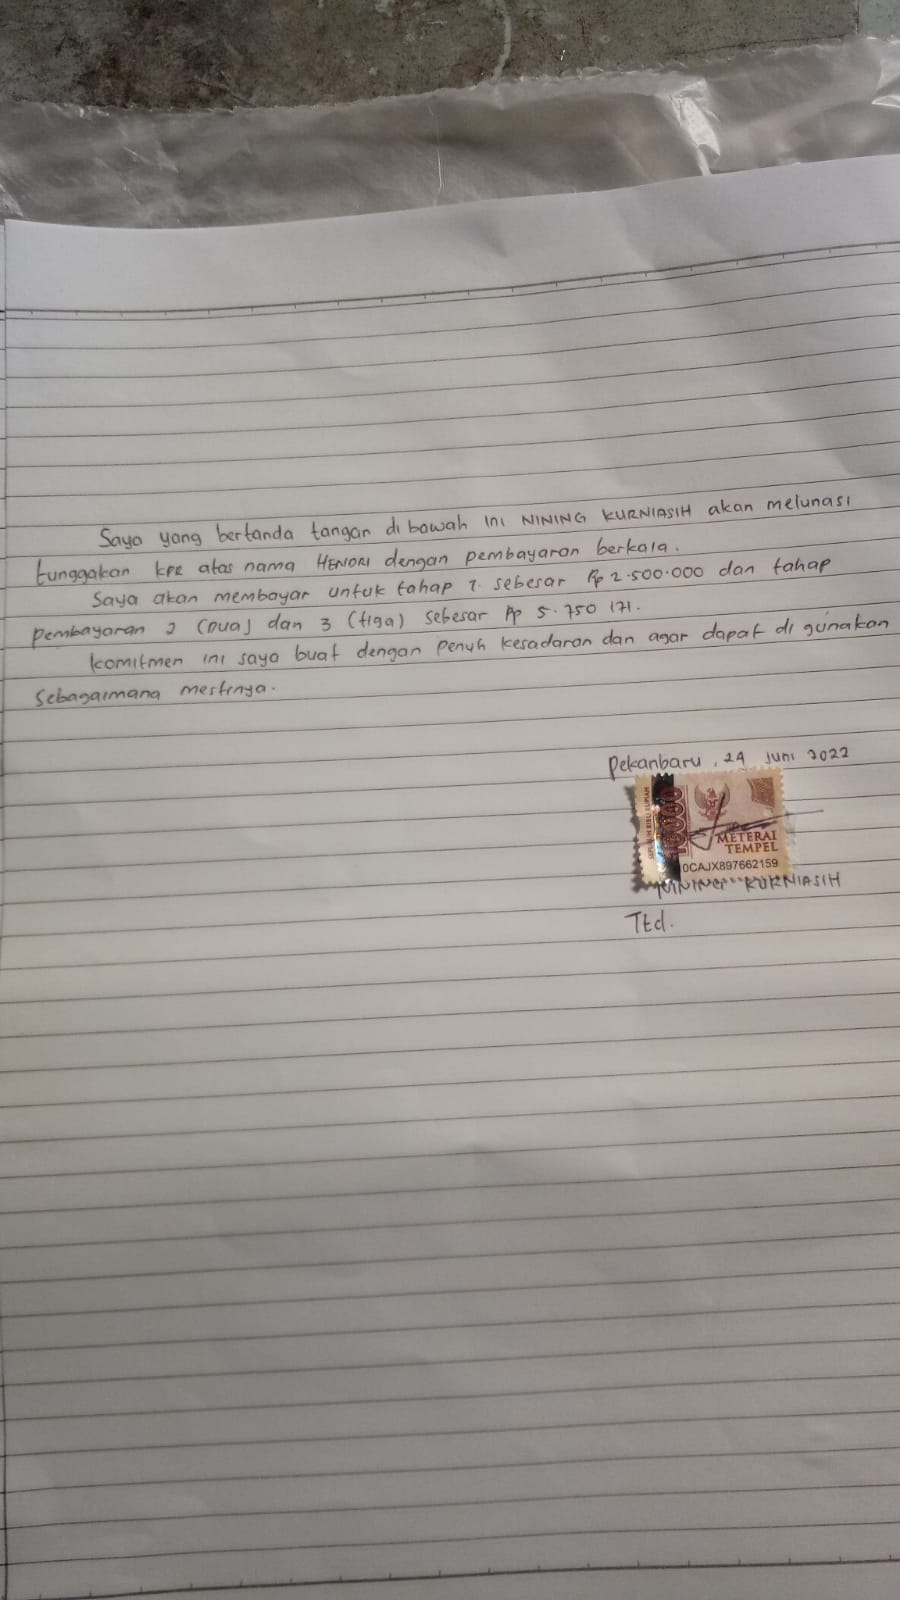 Saya yang bertanda tangan di bawah ini NINING KURNIASIH akan melunasi
tunggakan KPR atas nama HENDRI dengan pembayaran berkala.
Saya akan membayar untuk tahap 1. sebesar Rp 2.500.000 dan tahap
pembayaran 2 (Dua) dan 3 (tiga) sebesar Rp 5.750 171.
Komitmen ini saya buat dengan penuh kesadaran dan agar dapat di gunakan
sebagaimana mestinya.
Pekanbaru, 24 Juni 2022
SEPULUH RIBU RUPIAH
10000
METERAI
TEMPEL
0CAJX897662159
NINING KURNIASIH
Ttd.